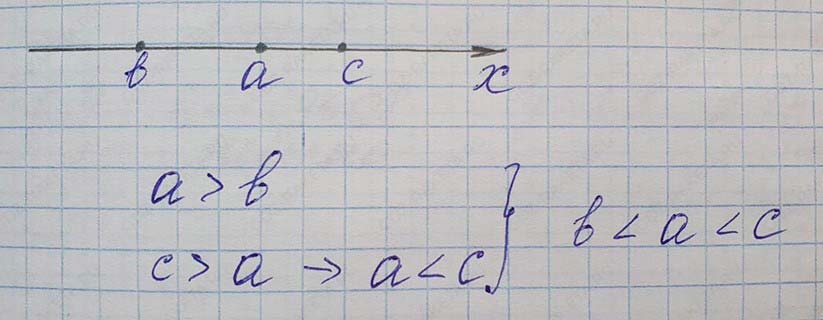 b a c x
a > b
c > a → a < c }
b < a < c